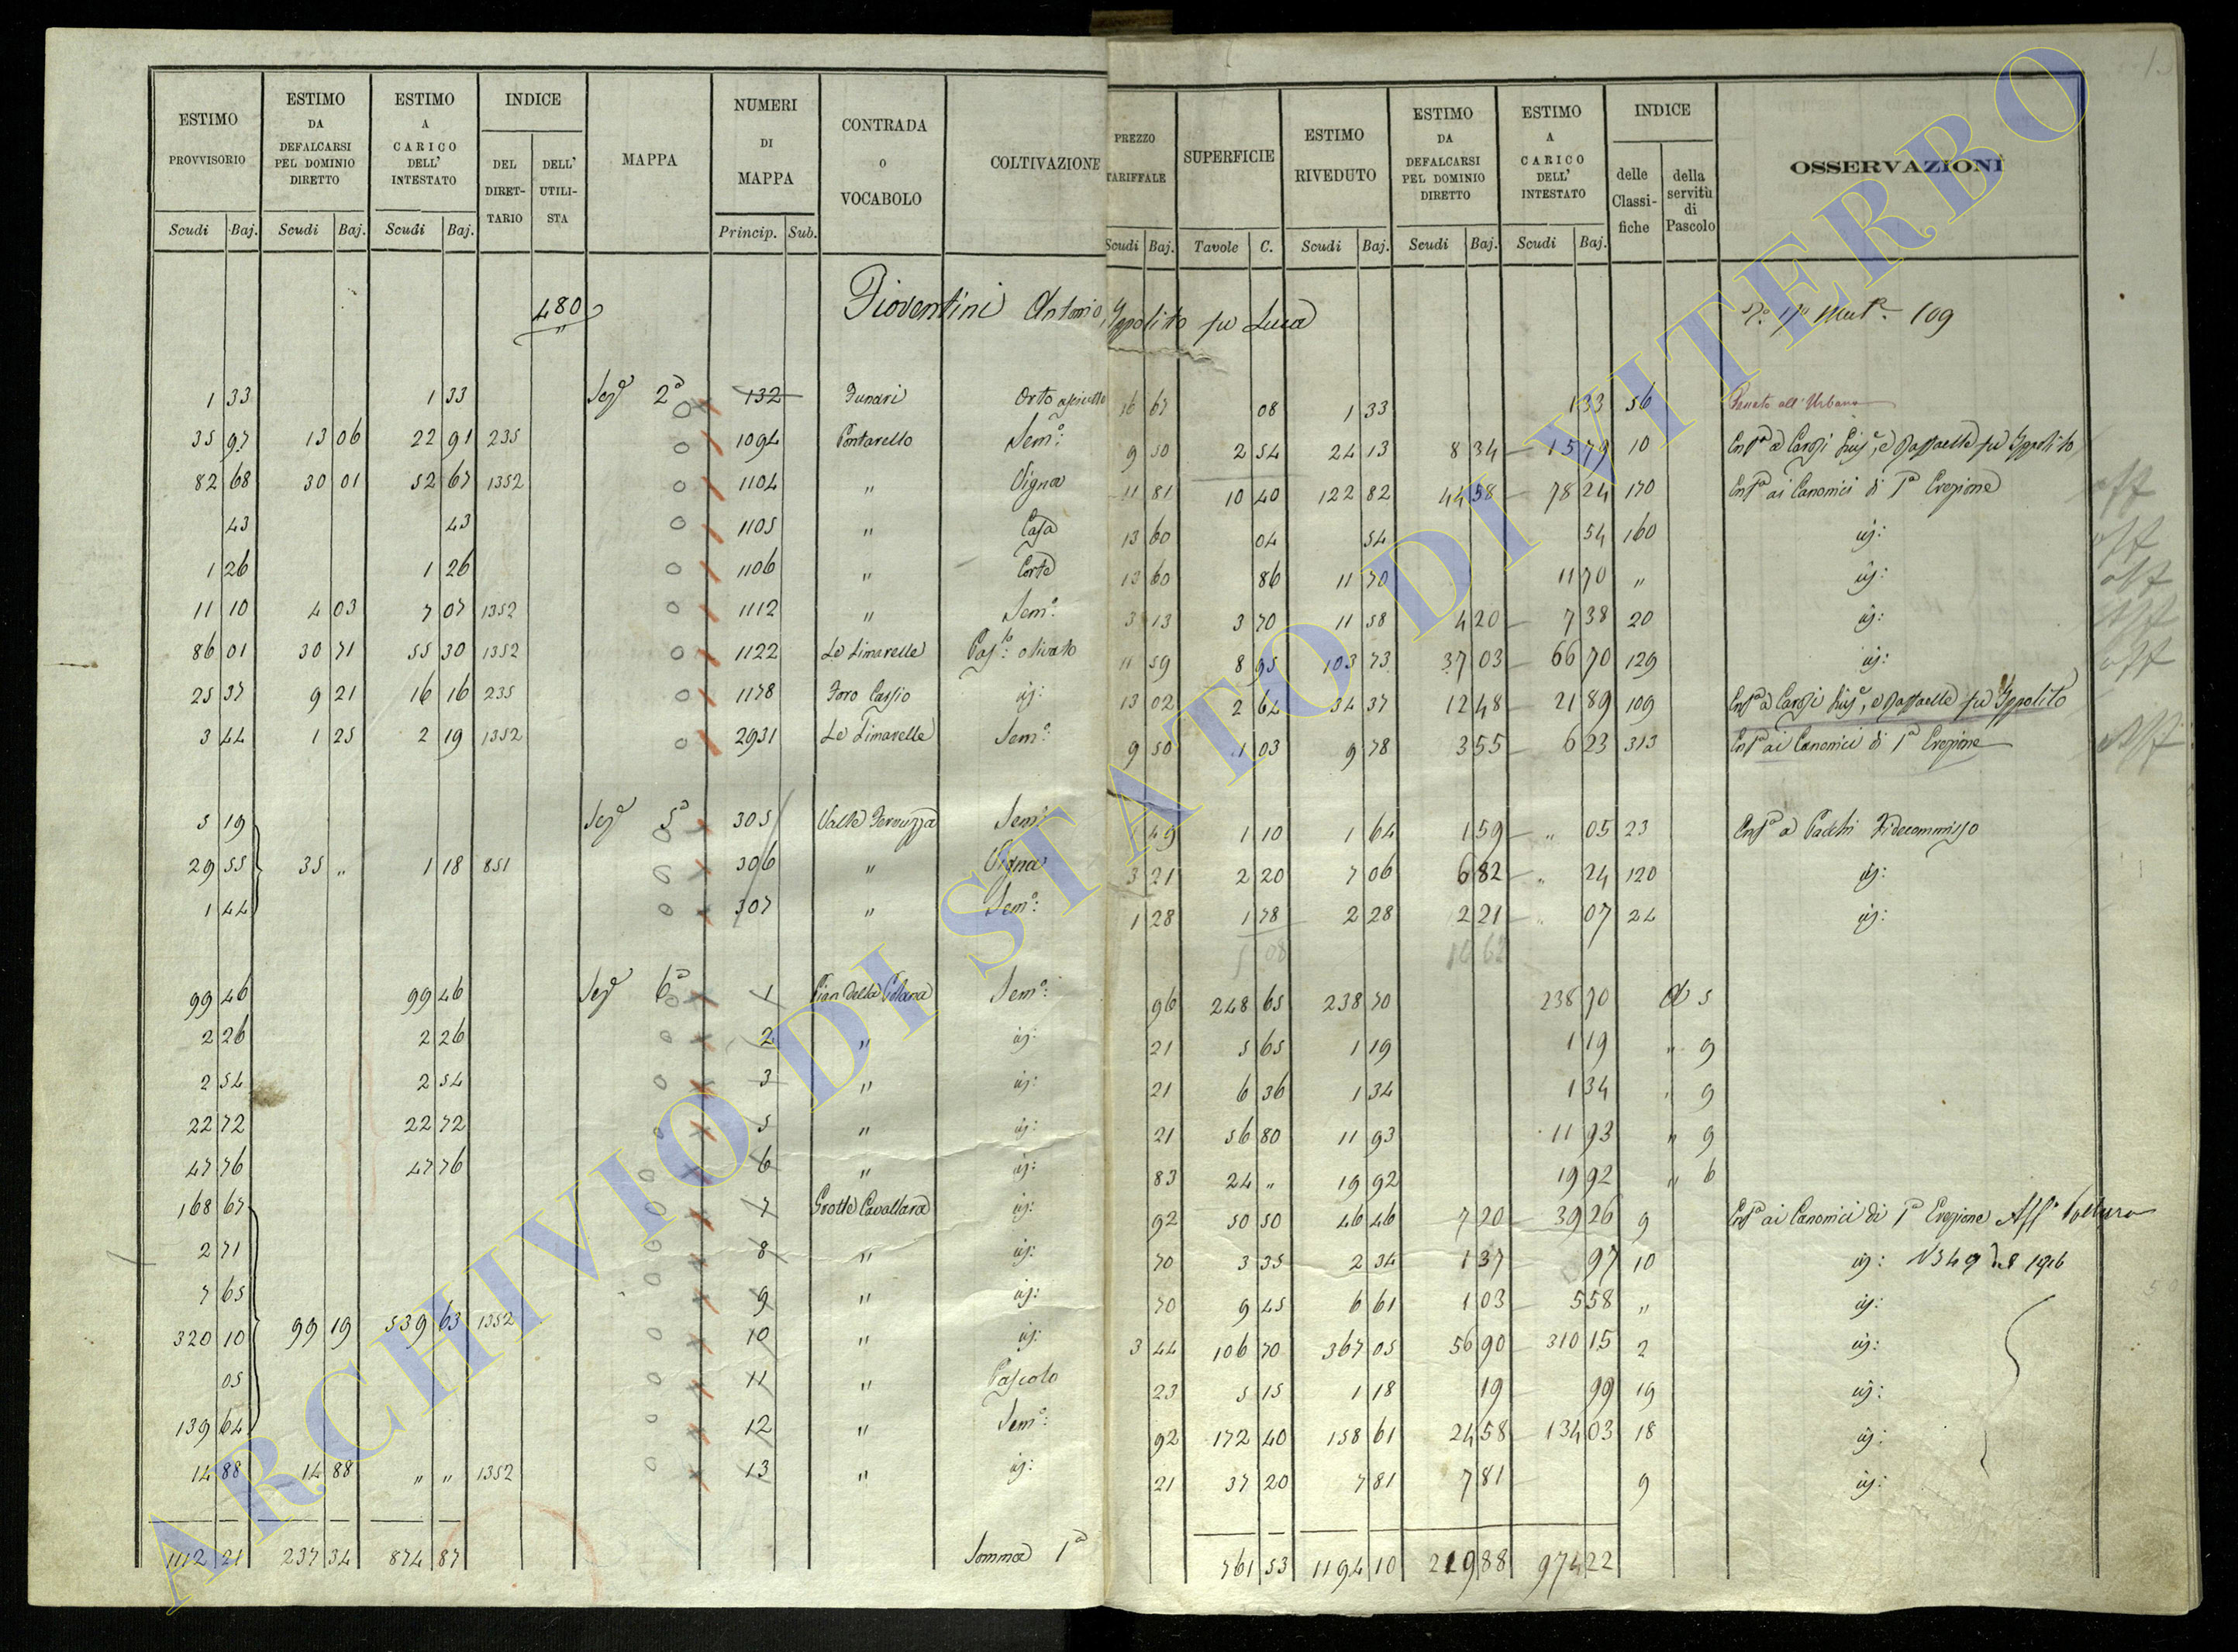 ESTIMO PROVVISORIO | ESTIMO DA DEFALCARSI PEL DOMINIO DIRETTO | ESTIMO A CARICO DELL' INTESTATO | INDICE | MAPPA | NUMERI DI MAPPA | CONTRADA O VOCABOLO | COLTIVAZIONE | PREZZO TARIFFALE | SUPERFICIE | ESTIMO RIVEDUTO | ESTIMO DA DEFALCARSI PEL DOMINIO DIRETTO | ESTIMO A CARICO DELL' INTESTATO | INDICE | OSSERVAZIONI
DEL DIRETTARIO | DELL' UTILISTA | delle Classifiche | della servitù di Pascolo
Scudi | Baj. | Scudi | Baj. | Scudi | Baj. | Princip. | Sub. | Scudi | Baj. | Tavole | C. | Scudi | Baj. | Scudi | Baj. | Scudi | Baj.
480 Pioventini Antonio, Ippolito fu Luca 109
1 33 | 1 33 | Sez 2a | 132 | Funari | Orto | 16 67 | 08 | 1 33 | 1 33 | 56 | Passato all'Urbano
35 97 | 13 06 | 22 91 | 235 | 1094 | Pontarello | Semo: | 9 50 | 2 54 | 24 13 | 8 34 | 15 79 | 10 | Enfa a Carosi Luigi, e Raffaelle fu Ippolito
82 68 | 30 01 | 52 67 | 1352 | 1104 | " | Vigna | 11 81 | 10 40 | 122 82 | 44 58 | 78 24 | 170 | Enfa ai Canonici di 1a Erezione | aff
43 | 43 | 1105 | " | Casa | 13 60 | 04 | 54 | 54 | 160 | id: | aff
1 26 | 1 26 | 1106 | " | Corte | 13 60 | 86 | 11 70 | 11 70 | " | id: | aff
11 10 | 4 03 | 7 07 | 1352 | 1112 | " | Semo: | 3 13 | 3 70 | 11 58 | 4 20 | 7 38 | 20 | id: | aff
86 01 | 30 71 | 55 30 | 1352 | 1122 | Le Limarelle | Paslo: olivato | 11 59 | 8 95 | 103 73 | 37 03 | 66 70 | 129 | id: | aff
25 37 | 9 21 | 16 16 | 235 | 1178 | Foro Cassio | id: | 13 02 | 2 64 | 34 37 | 12 48 | 21 89 | 109 | Enfa a Carosi Luigi, e Raffaelle fu Ippolito
3 44 | 1 25 | 2 19 | 1352 | 2931 | Le Limarelle | Semo: | 9 50 | 1 03 | 9 78 | 3 55 | 6 23 | 313 | Enfa ai Canonici di 1a Erezione | aff
5 19 | Sez 5a | 305 | Valle | Semo: | 1 49 | 1 10 | 1 64 | 1 59 | " 05 | 23 | Enfa a Fidecommisso
29 55 | 35 " | 1 18 | 851 | 306 | " | Vigna | 3 21 | 2 20 | 7 06 | 6 82 | " 24 | 120 | id:
1 44 | 307 | " | Semo: | 1 28 | 1 78 | 2 28 | 2 21 | " 07 | 24 | id:
5 08
99 46 | 99 46 | Sez 6a | 1 | Pian della | Semo: | 96 | 248 65 | 238 70 | 238 70 | A 5
2 26 | 2 26 | 2 | " | id: | 21 | 5 65 | 1 19 | 1 19 | " 9
2 54 | 2 54 | 3 | " | id: | 21 | 6 36 | 1 34 | 1 34 | " 9
22 72 | 22 72 | 5 | " | id: | 21 | 56 80 | 11 93 | 11 93 | " 9
47 76 | 47 76 | 6 | " | id: | 83 | 24 " | 19 92 | 19 92 | " 6
168 67 | 7 | Grotte Cavallara | id: | 92 | 50 50 | 46 46 | 7 20 | 39 26 | 9 | Enfa ai Canonici di 1a Erezione
2 71 | 8 | " | id: | 70 | 3 35 | 2 34 | 1 37 | 97 | 10 | id:
7 65 | 9 | " | id: | 70 | 9 45 | 6 61 | 1 03 | 5 58 | " | id:
320 10 | 99 19 | 539 63 | 1352 | 10 | " | id: | 3 44 | 106 70 | 367 05 | 56 90 | 310 15 | 2 | id:
05 | 11 | " | Pascolo | 23 | 5 15 | 1 18 | 19 | 99 | 19 | id:
139 64 | 12 | " | Semo: | 92 | 172 40 | 158 61 | 24 58 | 134 03 | 18 | id:
14 88 | 14 88 | " " | 1352 | 13 | " | id: | 21 | 37 20 | 7 81 | 7 81 | 9 | id:
1112 21 | 237 34 | 874 87 | Somma 1a | 761 53 | 1194 10 | 219 88 | 974 22
ARCHIVIO DI STATO DI VITERBO